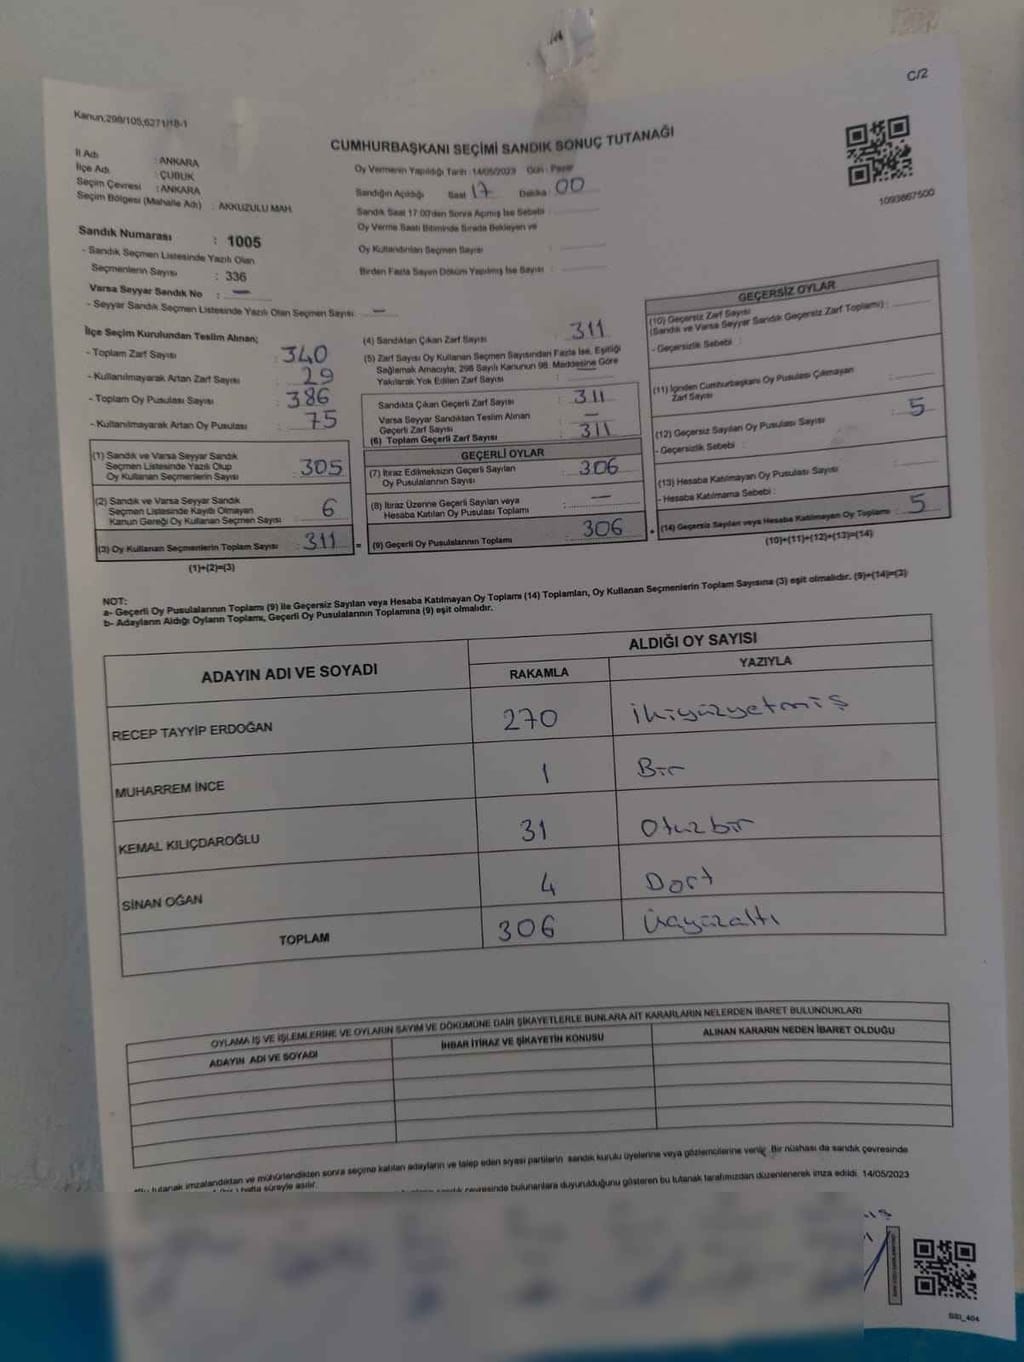 C/2
Kanun;298/105;6271/18-1
CUMHURBAŞKANI SEÇİMİ SANDIK SONUÇ TUTANAĞI
İl Adı : ANKARA
İlçe Adı : ÇUBUK
Seçim Çevresi : ANKARA
Seçim Bölgesi (Mahalle Adı) : AKKUZULU MAH.
Oy Vermenin Yapıldığı Tarih :14/05/2023 Gün : Pazar
Sandığın Açıldığı Saat 17 Dakika : 00
Sandık Saat 17:00'den Sonra Açımış İse Sebebi :
Oy Verme Saati Bitiminde Sırada Bekleyen ve
Oy Kullandırılan Seçmen Sayısı :
Birden Fazla Sayım Döküm Yapılmış İse Sayısı :
1093867500
Sandık Numarası : 1005
- Sandık Seçmen Listesinde Yazılı Olan
Seçmenlerin Sayısı : 336
Varsa Seyyar Sandık No : —
- Seyyar Sandık Seçmen Listesinde Yazılı Olan Seçmen Sayısı : —
İlçe Seçim Kurulundan Teslim Alınan;
- Toplam Zarf Sayısı : 340
- Kullanılmayarak Artan Zarf Sayısı : 29
- Toplam Oy Pusulası Sayısı : 386
- Kullanılmayarak Artan Oy Pusulası : 75
(1) Sandık ve Varsa Seyyar Sandık
Seçmen Listesinde Yazılı Olup
Oy Kullanan Seçmenlerin Sayısı : 305
(2) Sandık ve Varsa Seyyar Sandık
Seçmen Listesinde Kayıtlı Olmayan
Kanun Gereği Oy Kullanan Seçmen Sayısı : 6
(3) Oy Kullanan Seçmenlerin Toplam Sayısı : 311
(1)+(2)=(3)
(4) Sandıktan Çıkan Zarf Sayısı : 311
(5) Zarf Sayısı Oy Kullanan Seçmen Sayısından Fazla İse, Eşitliği
Sağlamak Amacıyla, 298 Sayılı Kanunun 98. Maddesine Göre
Yakılarak Yok Edilen Zarf Sayısı : —
Sandıkta Çıkan Geçerli Zarf Sayısı : 311
Varsa Seyyar Sandıktan Teslim Alınan
Geçerli Zarf Sayısı : —
(6) Toplam Geçerli Zarf Sayısı : 311
GEÇERLİ OYLAR
(7) İtiraz Edilmeksizin Geçerli Sayılan
Oy Pusulalarının Sayısı : 306
(8) İtiraz Üzerine Geçerli Sayılan veya
Hesaba Katılan Oy Pusulası Toplamı : —
= (9) Geçerli Oy Pusulalarının Toplamı : 306
GEÇERSİZ OYLAR
(10) Geçersiz Zarf Sayısı
(Sandık ve Varsa Seyyar Sandık Geçersiz Zarf Toplamı) :
- Geçersizlik Sebebi :
(11) İçinden Cumhurbaşkanı Oy Pusulası Çıkmayan
Zarf Sayısı :
(12) Geçersiz Sayılan Oy Pusulası Sayısı : 5
- Geçersizlik Sebebi :
(13) Hesaba Katılmayan Oy Pusulası Sayısı :
- Hesaba Katılmama Sebebi :
+ (14) Geçersiz Sayılan veya Hesaba Katılmayan Oy Toplamı : 5
(10)+(11)+(12)+(13)=(14)
NOT:
a- Geçerli Oy Pusulalarının Toplamı (9) ile Geçersiz Sayılan veya Hesaba Katılmayan Oy Toplamı (14) Toplamları, Oy Kullanan Seçmenlerin Toplam Sayısına (3) eşit olmalıdır. (9)+(14)=(3)
b- Adayların Aldığı Oyların Toplamı, Geçerli Oy Pusulalarının Toplamına (9) eşit olmalıdır.
ADAYIN ADI VE SOYADI
ALDIĞI OY SAYISI
RAKAMLA YAZIYLA
RECEP TAYYİP ERDOĞAN 270 ikiyüzyetmiş
MUHARREM İNCE 1 Bir
KEMAL KILIÇDAROĞLU 31 Otuzbir
SİNAN OĞAN 4 Dört
TOPLAM 306 Üçyüzaltı
OYLAMA İŞ VE İŞLEMLERİNE VE OYLARIN SAYIM VE DÖKÜMÜNE DAİR ŞİKAYETLERLE BUNLARA AİT KARARLARIN NELERDEN İBARET BULUNDUKLARI
ADAYIN ADI VE SOYADI İHBAR İTİRAZ VE ŞİKAYETİN KONUSU ALINAN KARARIN NEDEN İBARET OLDUĞU
tutanak imzalandıktan ve mühürlendikten sonra seçime katılan adayların ve talep eden siyasi partilerin sandık kurulu üyelerine veya gözlemcilerine verilir. Bir nüshası da sandık çevresinde
hafta süreyle asılır.
çevresinde bulunanlara duyurulduğunu gösteren bu tutanak tarafımızdan düzenlenerek imza edildi. 14/05/2023
SSI_404